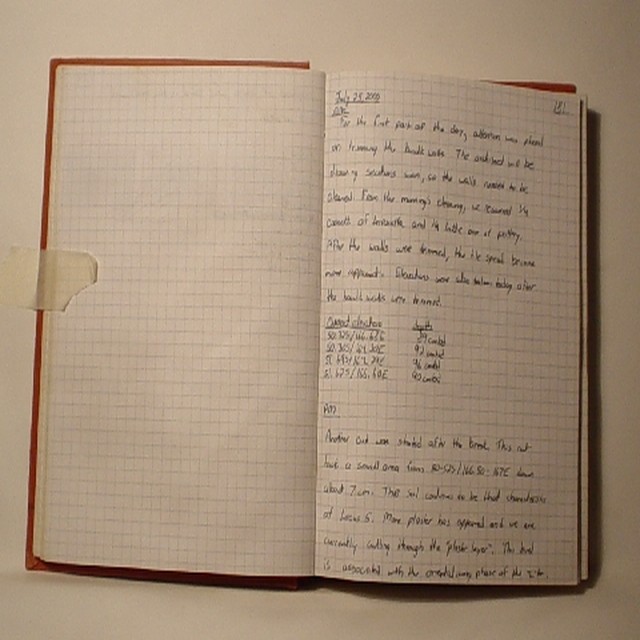 July 25 2005
151
For the first part of the day, attention was placed
on trimming the baulk walls. The architect will be
drawing sections soon, so the walls needed to be
cleaned. From the morning's cleaning, we recovered 1/4
of terracotta and 1/4 latte one of pottery.
After the walls were trimmed, the tile spread became
more apparent. Elevations were also taken today after
the baulk walls were trimmed.
Current elevations depths
cmbd
cmbd
96 cmbd
cmbd
PM
Another cut was started after the break. This cut
took a small area from 50.525/166.50-167E down
about 7cm. This soil continues to be that characteristic
of Locus 5. More plaster has appeared and we are
currently cutting through the "plaster layer". This level
is associated with the orientalizing phase of the site.